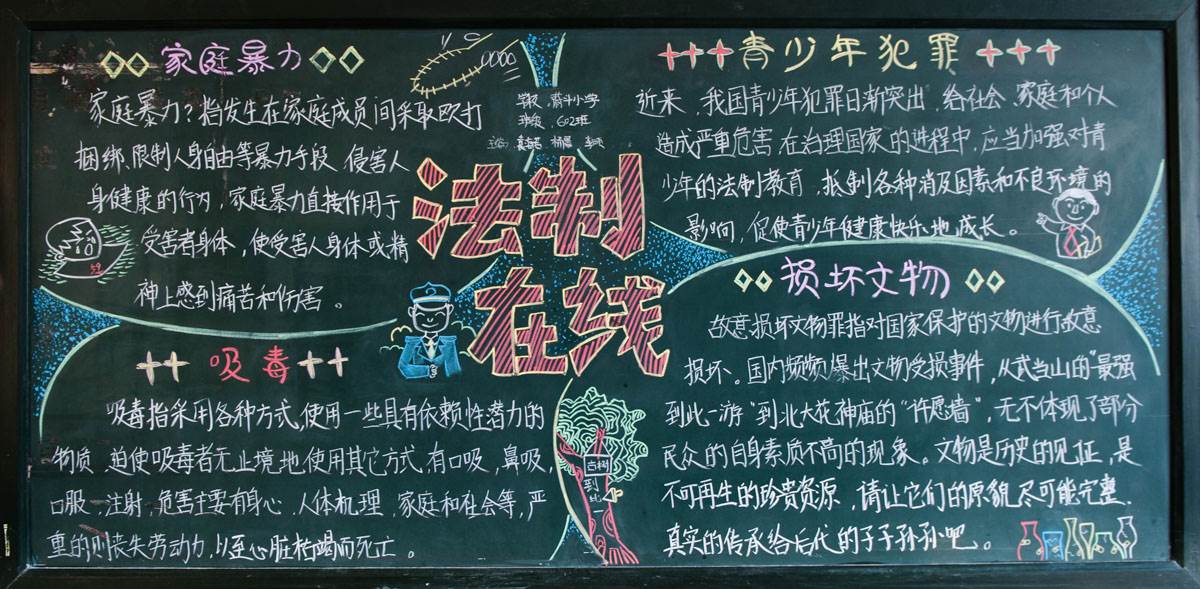 家庭暴力
家庭暴力？指发生在家庭成员间采取殴打
捆绑、限制人身自由等暴力手段 侵害人
身健康的行为，家庭暴力直接作用于
受害者身体，使受害人身体或精
神上感到痛苦和伤害。
小学
班级：602班
法制
在线
青少年犯罪
近来，我国青少年犯罪日渐突出，给社会、家庭和个人
造成严重危害 在治理国家的进程中，应当加强对青
少年的法制教育，抵制各种消及因素和不良环境的
影响，促使青少年健康快乐地成长。
吸毒
吸毒指采用各种方式，使用一些具有依赖性潜力的
物质，迫使吸毒者无止境地使用其它方式，有口吸，鼻吸，
口服、注射，危害主要有身心、人体机理、家庭和社会等，严
重的则丧失劳动力，以至心脏枯竭而死亡。
损坏文物
故意损坏文物罪指对国家保护的文物进行故意
损坏。国内频频爆出文物受损事件，从武当山的“最强
到此一游”到北大花神庙的“许愿墙”，无不体现了部分
民众的自身素质不高的现象。文物是历史的见证，是
不可再生的珍贵资源，请让它们的原貌尽可能完整、
真实的传承给后代的子子孙孙吧。
古树
到
此
一